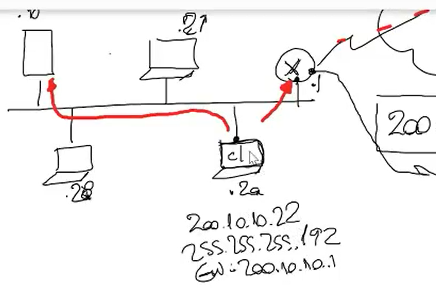 .10
.21
X
.1
200
cl
200.10.10.22
255.255.255.192
GW:200.10.10.1